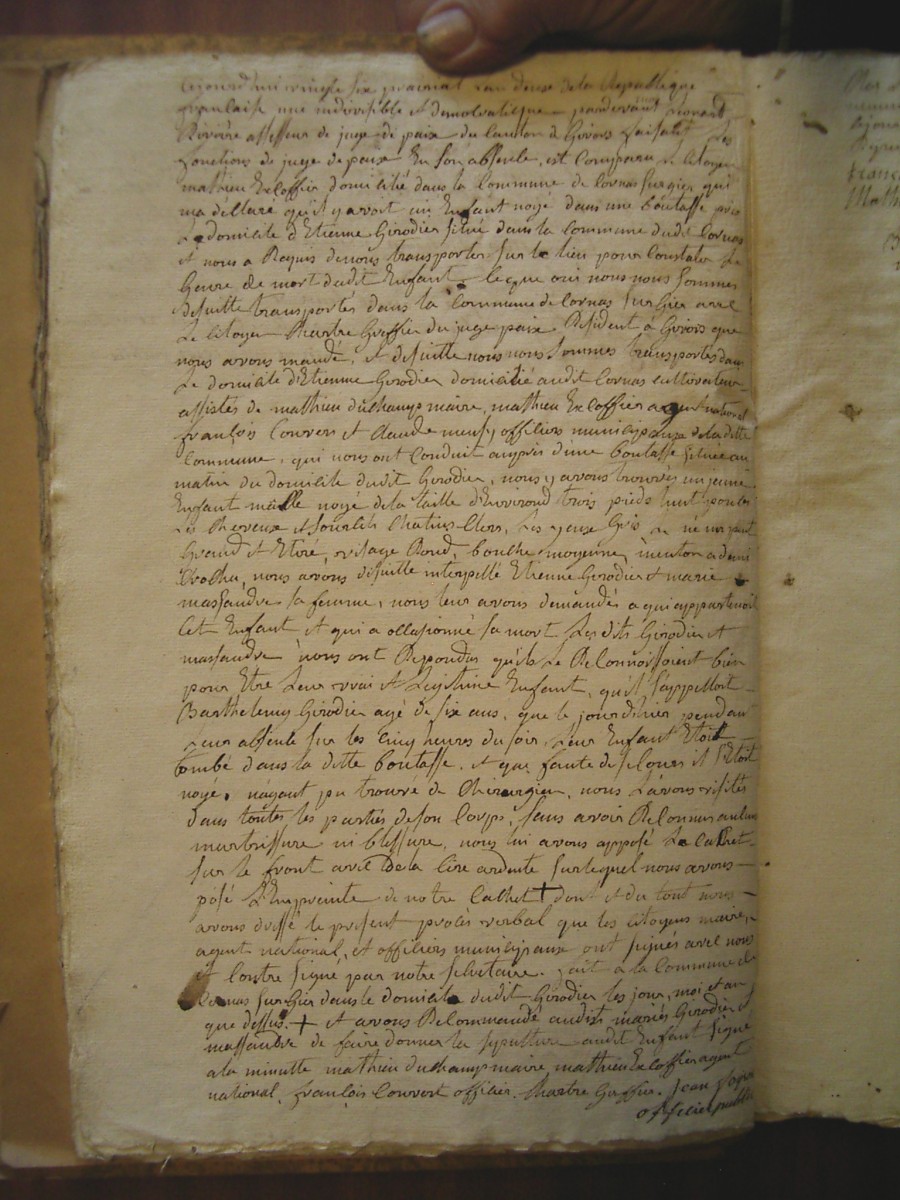 aujourd'hui vingt six prairial l'an deux de la Republique
francaise une indivisible et democratique pardevant Leonard
Riviere assesseur de juge de paix du canton de Givors faisant les
fonctions de juge de paix En son absente, est Comparu Le Citoyen
mathieu Excoffier domicilié dans la Commune de Cornas surgier qui
ma déclaré qu'il y avoit un Enfant noyé dans une boutasse près
Le domicile d'Etienne Girodier située dans la Commune dudit Cornas
et nous a Requis de nous transporter sur le lieu pour Constater Le
Genre de mort dudit Enfant, Ce que oui nous nous sommes
desuitte transportés dans la Commune de Cornas sur Gier avec
Le Citoyen Martre Greffier du juge paix Résident à Givors que
nous avons mandé, et desuitte nous nous sommes transportés dans
Le domicile d'Etienne Girodier domicilié audit Cornas cultivateur
assistés de mathieu duchamp maire, mathieu Excoffier agent national
françois Couvert et Claude officiers municipaux de la ditte
Commune, qui nous ont Conduit auprès d'une boutasse située au
matin du domicile dudit Girodier, nous y avons trouvés un jeune
Enfant malle noyé de la taille d'Environd trois pieds huit pouces
Les cheveux et sourcils Chatins Clers, Les yeux Gris Le né
Grand et Etiré, visage Rond, bouche moyenne, menton a demi
nous avons desuitte interpellé Etienne Girodier et marie
massaudre sa femme, nous leur avons demandés a qui appartenoit
Cet Enfant et qui a occasionné sa mort Les dits Girodier et
massaudre nous ont Repondus qu'ils Le Reconnoissoient bien
pour Etre Leur vrai et Legitime Enfant, qu'il s'appelloit
Barthelemy Girodier agé de six ans, que le jour d'hier pendant
Leur absente sur les Cinq heures du soir Leur Enfant Etoit
tombé dans la ditte boutasse, et que faute de secours il s'Etoit
noyé, n'ayant pu trouvé de Chirurgien, nous L'avons visités
dans toutes les parties de son Corps, sans avoir Reconnus aucune
murtrissure ni blessure, nous lui avons apposé Le Cachet
sur le front avec De la Cire ardente sur lequel nous avons
posé L'Empreinte de notre Cachet + dont et du tout nous
avons dressé le present procès verbal que les citoyens maire,
agent national, et officiers municipaux ont signés avec nous
et Contre signé par notre secretaire. fait a la Commune de
Cornas sur Gier dans le domicile dudit Girodier les jour, moi et an
que dessus. + et avons Recommandé audits mariés Girodier et
massaudre de faire donner la sepulture audit Enfant signé
a la minutte mathieu duchamp maire, mathieu Excoffier agent
national, françois Couvert officier. Martre Greffier. Jean
officier public